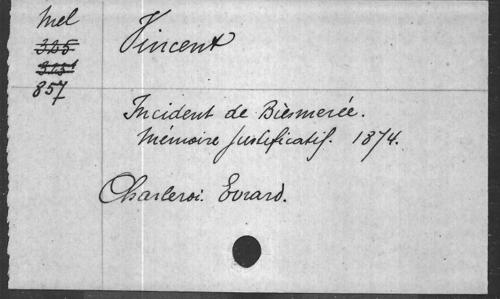 Mel
325
3251
857
Vincent
Incident de Bièsmerée.
Mémoire justificatif. 1874.
Charleroi. Evrard.